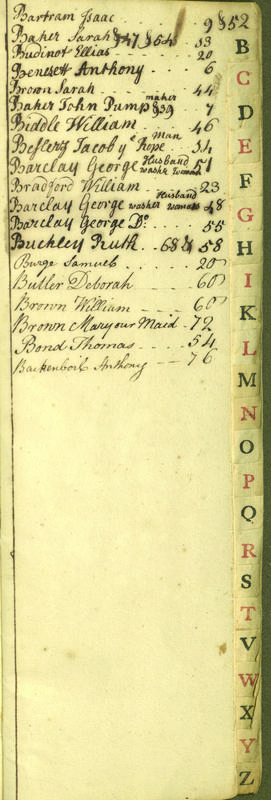 Bartram Isaac - - - 9 §52
Baker Sarah §47 §54 53
Budinot Ellias - - - 20
Benezett Anthony - 6
Brown Sarah - - - 44
Baker John Pump maker §39 7
Biddle William - - - 46
Beslerz Jacob ye Rope man 34
Barclay George Husband washer woman 51
Bradford William - - 23
Barclay George Husband washer woman 48
Barclay George Do. - - 55
Buckley Ruth - 68 & 58
Burge Samuel - - - 20
Butler Deborah - - - 60
Brown William - - - 60
Brown Mary our Maid - 72
Bond Thomas - - - 54
Backenboil Anthony - - 76
B
C
D
E
F
G
H
I
K
L
M
N
O
P
Q
R
S
T
V
W
X
Y
Z